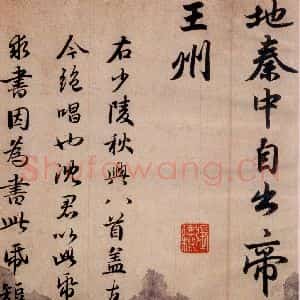 地秦中自古帝
王州
右少陵秋興八首盖古
今絶唱也沈君以此𢃄
求書因為書此𢃄短
Shufawang.cn